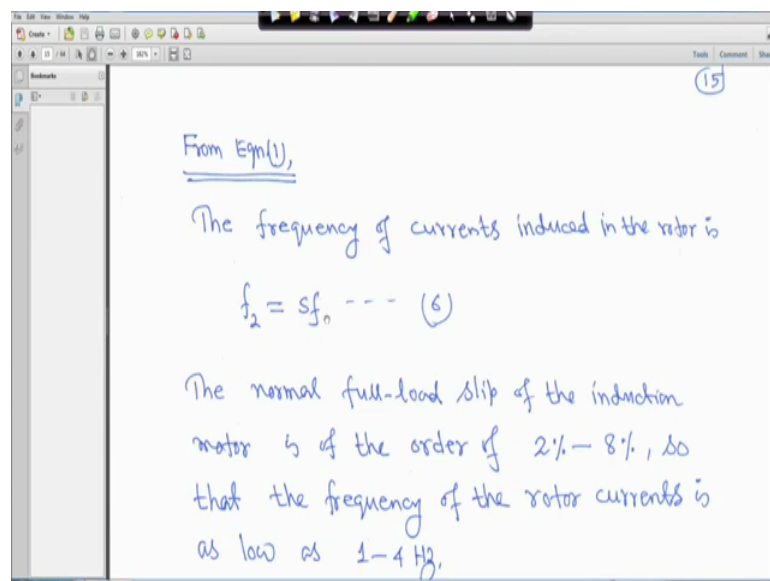 File Edit View Window Help
Create
15 / 64
182%
Tools Comment Share
Bookmarks
15
From Eqn(1),
The frequency of currents induced in the rotor is
f₂ = sf. --- (6)
The normal full-load slip of the induction
motor is of the order of 2% - 8%, so
that the frequency of the rotor currents is
as low as 1-4 Hz.